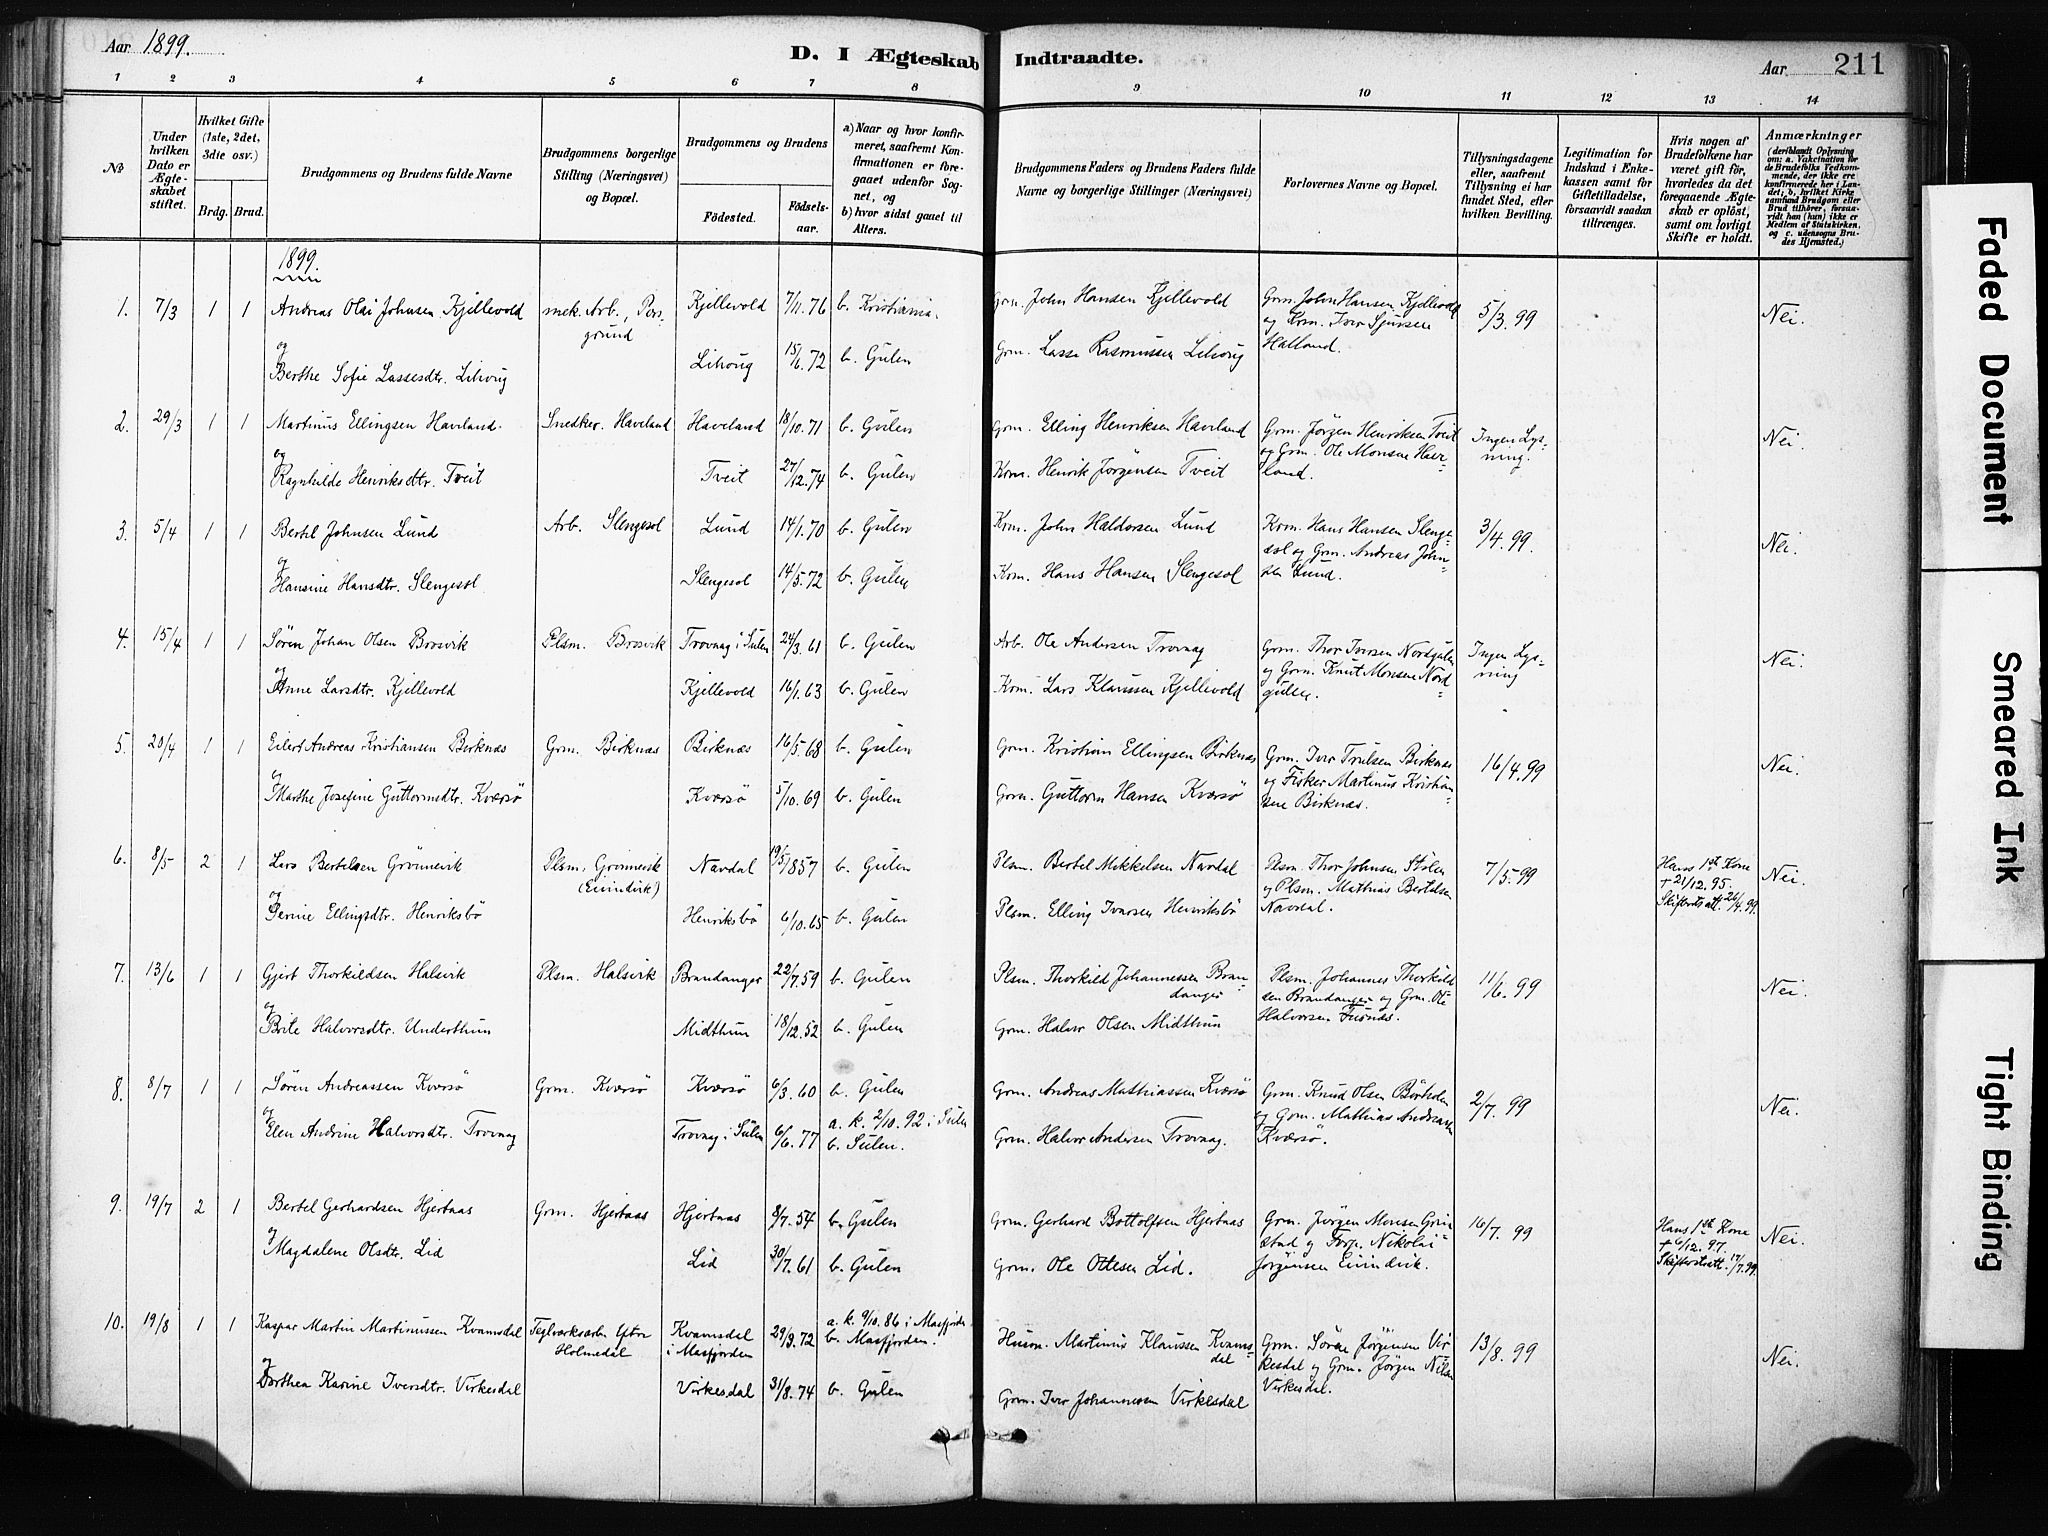 Aar 1899.
D. I Ægteskab Indtraadte.
Aar 211
1 2 3 4 5 6 7 8 9 10 11 12 13 14
No
Under hvilken Dato er Ægteskabet stiftet.
Hvilket Gifte (1ste, 2det, 3die osv.)
Brdg. Brud.
Brudgommens og Brudens fulde Navne
Brudgommens borgerlige Stilling (Næringsvei) og Bopæl.
Brudgommens og Brudens
Fødested. Fødselsaar.
a) Naar og hvor konfirmeret, saafremt Konfirmationen er foregaaet udenfor Sognet, og
b) hvor sidst gaaet til Alters.
Brudgommens Faders og Brudens Faders fulde Navne og borgerlige Stillinger (Næringsvei)
Forlovernes Navne og Bopæl.
Tillysningsdagene eller, saafremt Tillysning ei har fundet Sted, efter hvilken Bevilling.
Legitimation for Indskud i Enkekassen samt for Giftetilladelse, forsaavidt saadan tiltrænges.
Hvis nogen af Brudefolkene har været gift før, hvorledes da det foregaaende Ægteskab er opløst, samt om lovligt Skifte er holdt.
Anmærkninger
(deriblandt Oplysning om: a. Vakcination for de Brudefolks Vedkommende, der ikke ere konfirmerede her i Landet; b. hvilket Kirkesamfund Brudgom eller Brud tilhører, forsaavidt han (hun) ikke er Medlem af Statskirken, og c. udensogns Brudes Hjemsted.)
1899
1. 7/3 1 1 Andreas Olai Johnsen Kjellevold mek. Arb., Porsgrund Kjellevold 7/11.76 b. Kristiania. Grm. John Hansen Kjellevold Grm. John Hansen Kjellevold og Krm. Iver Sjursen Halland. 5/3.99 Nei.
og Berthe Sofie Lassesdtr. Lihoug Lihoug 15/6.72 b. Gulen Grm. Lasse Rasmussen Lihoug
2. 29/3 1 1 Martinus Ellingsen Haveland. Snedker. Haveland Haveland 18/10.71 b. Gulen Grm. Elling Henriksen Haveland Grm. Jørgen Henriksen Tveit og Grm. Ole Monsen Haveland. Ingen Lysning. Nei.
og Ragnhilde Henriksdtr. Tveit Tveit 27/12.74 b. Gulen Krm. Henrik Jørgensen Tveit
3. 5/4 1 1 Bertel Johnsen Lund Arb. Slengesol Lund 14/1.70 b. Gulen Krm. John Haldorsen Lund Krm. Hans Hansen Slengesol og Grm. Andreas Johnsen Lund. 3/4.99. Nei.
og Hansine Hansdtr. Slengesol Slengesol 14/5.72 b. Gulen Krm. Hans Hansen Slengesol
4. 15/4 1 1 Søren Johan Olsen Brosvik Plsm. Brosvik Trovnag i Sulen 24/3.61 b. Gulen Arb. Ole Andersen Trovnag Grm. Thor Iversen Nordgulen og Grm. Knut Monsen Nordgulen. Ingen Lysning Nei.
og Anne Larsdtr. Kjellevold Kjellevold 16/1.63 b. Gulen Krm. Lars Klaussen Kjellevold
5. 20/4 1 1 Eilert Andreas Kristiansen Birknæs Grm. Birknæs Birknæs 16/5.68 b. Gulen Grm. Kristian Ellingsen Birknæs Grm. Iver Trulsen Birknæs og Fisker Martinus Kristiansen Birknæs. 16/4.99 Nei.
og Marthe Josefine Guttormsdtr. Kversø Kversø 5/10.69 b. Gulen Grm. Guttorm Hansen Kversø
6. 8/5 2 1 Lars Bertelsen Grønnevik Plsm. Grønnevik (Eivindvik) Navdal 19/5 1857 b. Gulen Plsm. Bertel Mikkelsen Navdal Plsm. Thor Johnsen Stølen og Plsm. Mathias Bertelsen Navdal. 7/5.99 Hans 1st Kone + 21/12.95. Skifteretsatt. 26/4.99. Nei.
og Perine Ellingsdtr. Henriksbø Henriksbø 6/10.65 b. Gulen Plsm. Elling Ivarsen Henriksbø
7. 13/6 1 1 Gjert Thorkildsen Halsvik Plsm. Halsvik Brandanger 22/7.59 b. Gulen Plsm. Thorkild Johannessen Brandanger Plsm. Johannes Thorkildsen Brandanger og Grm. Ole Halvorsen Fusnæs. 11/6.99 Nei.
og Brite Halvorsdtr. Underthun Midthun 18/12.52 b. Gulen Grm. Halvor Olsen Midthun
8. 8/7 1 1 Søren Andreassen Kversø Grm. Kversø Kversø 6/3.60 b. Gulen Grm. Andreas Mathiassen Kversø Grm. Knud Olsen Børholm og Grm. Mathias Andreassen Kversø. 2/7.99 Nei.
og Elen Andrine Halvorsdtr. Trovnag Trovnag i Sulen 6/6.77 a. k. 2/10.92 i Sulen b. Sulen. Grm. Halvor Andersen Trovnag.
9. 19/7 2 1 Bertel Gerhardsen Hjertnaas Grm. Hjertnaas Hjertnaas 8/7.54 b. Gulen Grm. Gerhard Bottolfsen Hjertnaas Grm. Jørgen Monsen Grinstad og Forp. Nikolai Jørgensen Eivindvik. 16/7.99 Hans 1st Kone + 6/12.97. Skifteretsatt. 17/7.99. Nei.
og Magdalene Olsdtr. Lid Lid 30/7.61 b. Gulen Grm. Ole Ottesen Lid.
10. 19/8 1 1 Kaspar Martin Martinussen Kvamsdal Teglværksarb. Ytre Holmedal Kvamsdal i Masfjorden 29/9.72 a. k. 9/10.86 i Masfjorden b. Masfjorden. Husm. Martinus Klaussen Kvamsdal Grm. Søren Jørgensen Virkesdal og Grm. Jørgen Nilsen Virkesdal. 13/8.99 Nei.
og Dorthea Karine Iversdtr. Virkesdal Virkesdal 31/8.74 b. Gulen Grm. Iver Johannesen Virkesdal
Faded Document
Smeared Ink
Tight Binding